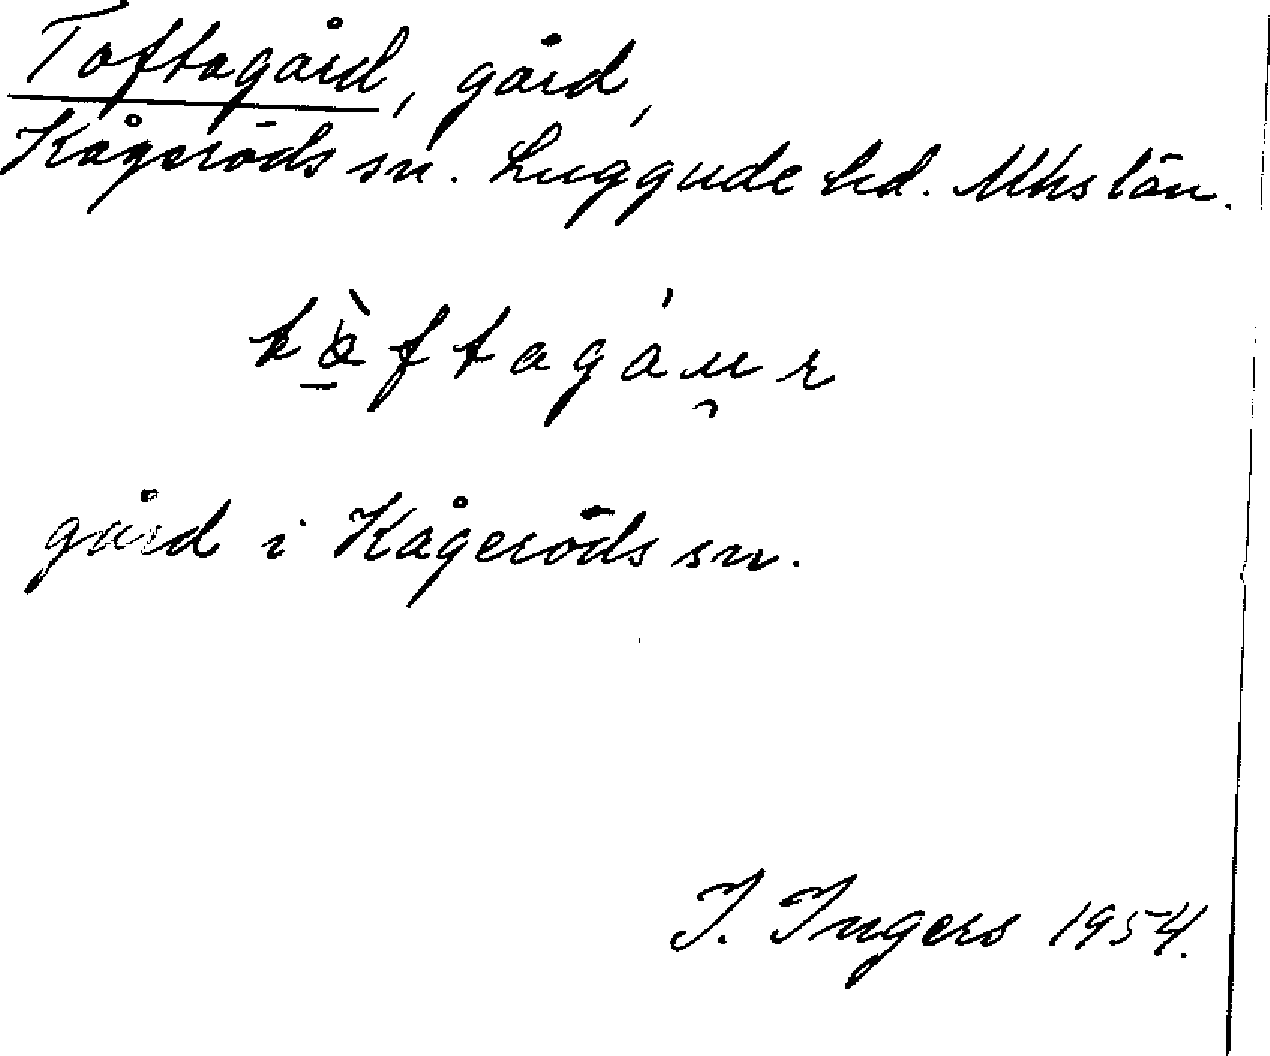 Toftagård, gård,
Kågeröds sn. Luggude hd. Mhs län.
tòftagáu̯r
gård i Kågeröds sn.
I. Ingers 1954.